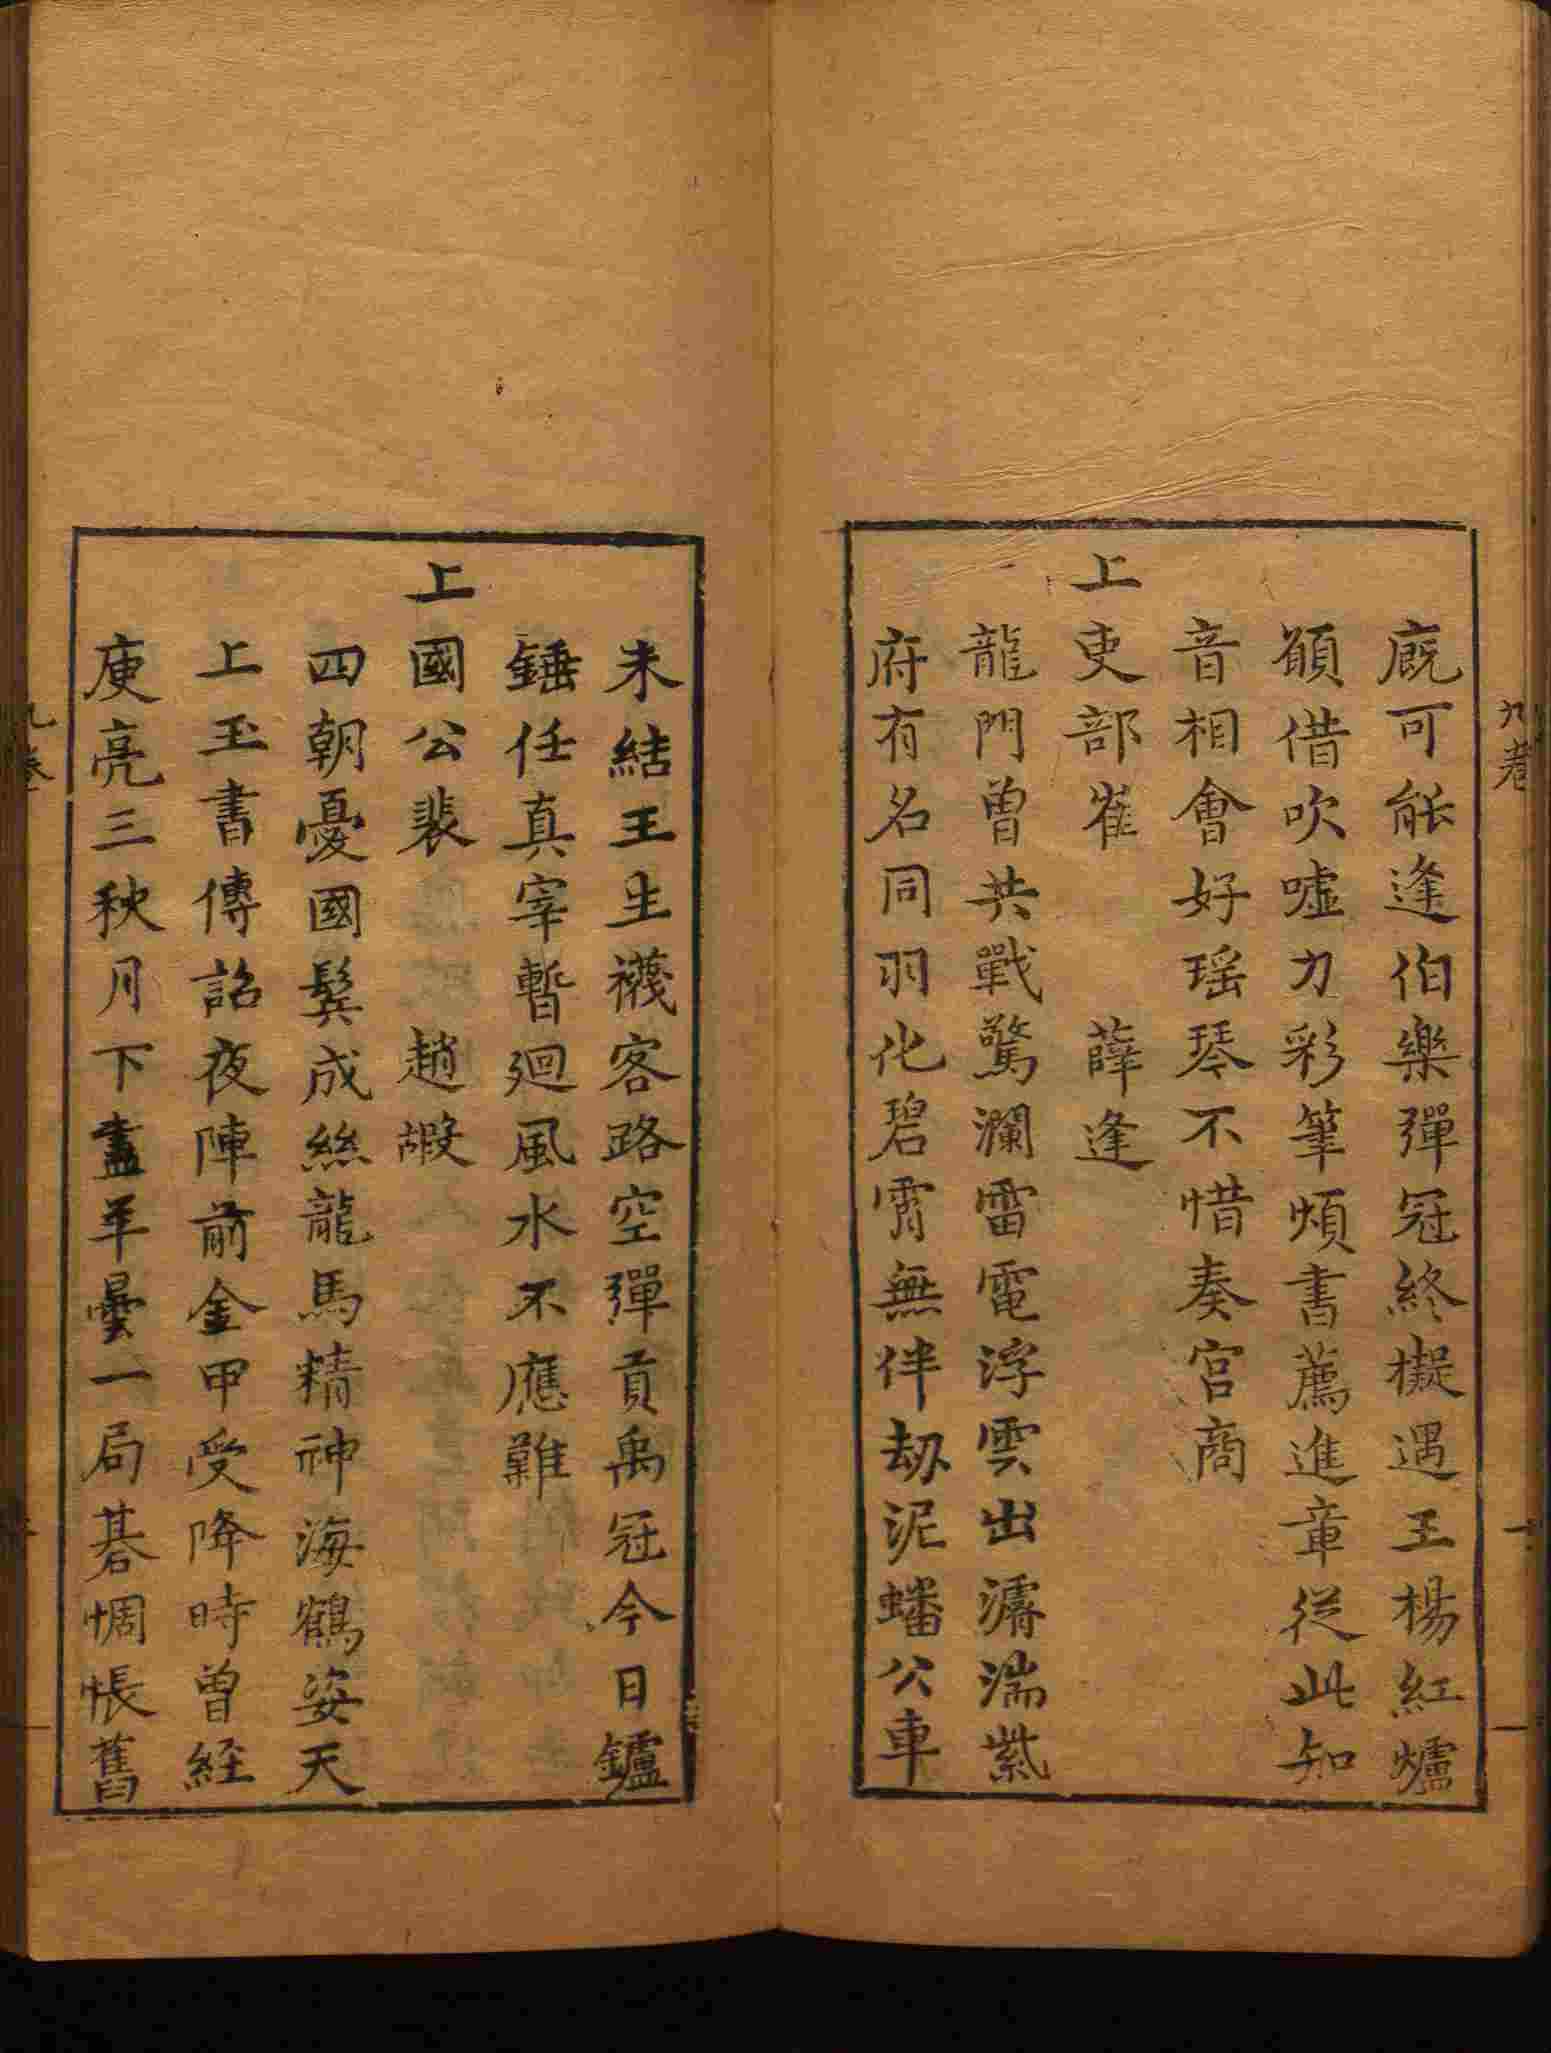 廐可能逢伯樂彈冠終擬遇王楊紅爐
願借吹噓力彩筆頻書薦進章從此知
音相會好瑶琴不惜奏宮商
上吏部崔　薛逢
龍門曾共戰驚瀾雷電浮雲出濬湍紫
府有名同羽化碧霄無伴劫泥蟠公車
未結王生襪客路空彈貢禹冠今日鑪
錘任真宰暫廻風水不應難
上國公裴　趙嘏
四朝憂國鬂成絲龍馬精神海鶴姿天
上玉書傳詔夜陣前金甲受降時曾経
庾亮三秋月下盡羊曇一局碁惆悵舊
九巻
九巻